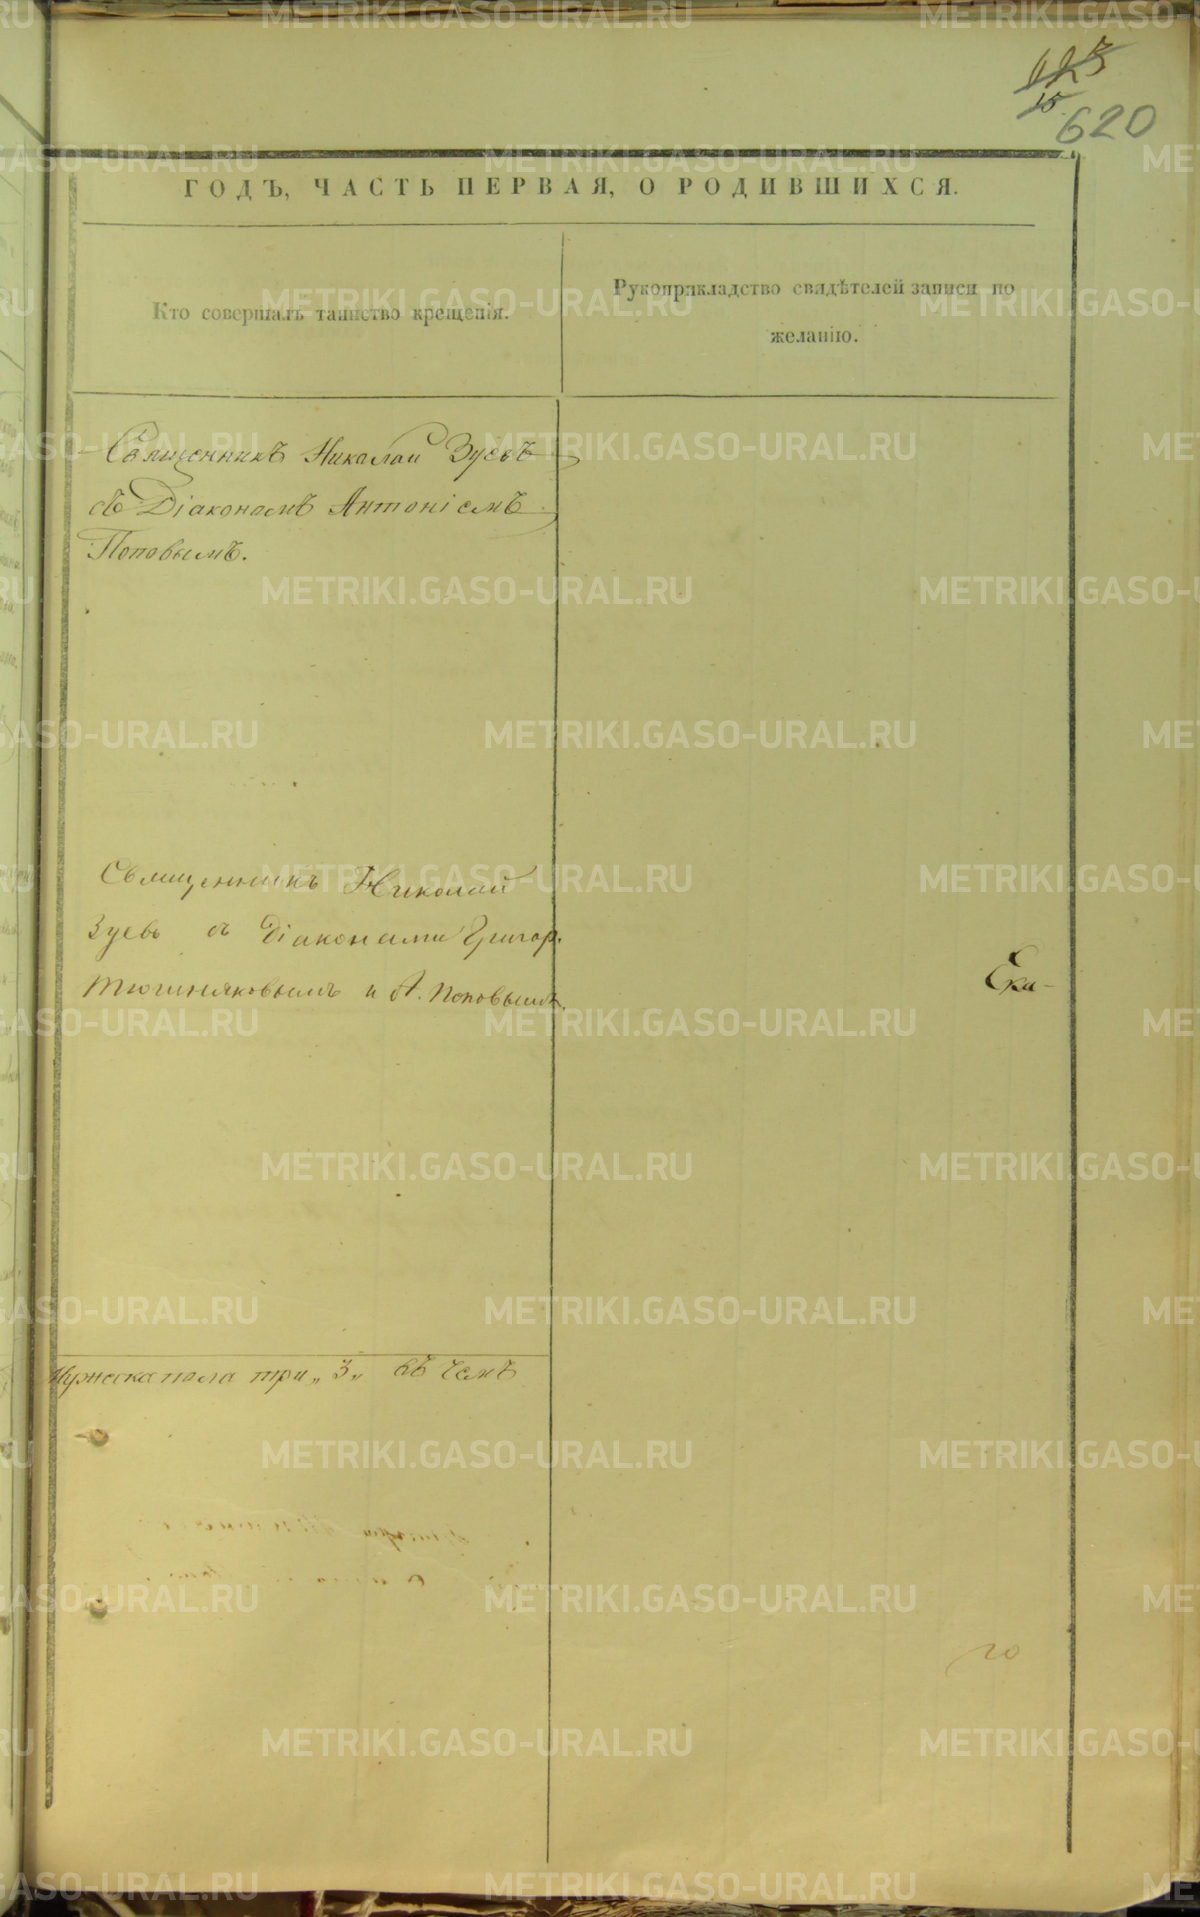 15
620
ГОДЪ, ЧАСТЬ ПЕРВАЯ, О РОДИВШИХСЯ.
Кто совершалъ таинство крещенія.
Рукоприкладство свидѣтелей записи по
желанію.
Священникъ Николай Зуевъ
съ Діакономъ Антоніемъ
Поповымъ.
Священникъ Николай
Зуевъ съ Діаконами Григор.
Тюшняковымъ и А. Поповымъ.
Ека-
Мужеска пола три „3„ въ чемъ
го
METRIKI.GASO-URAL.RU